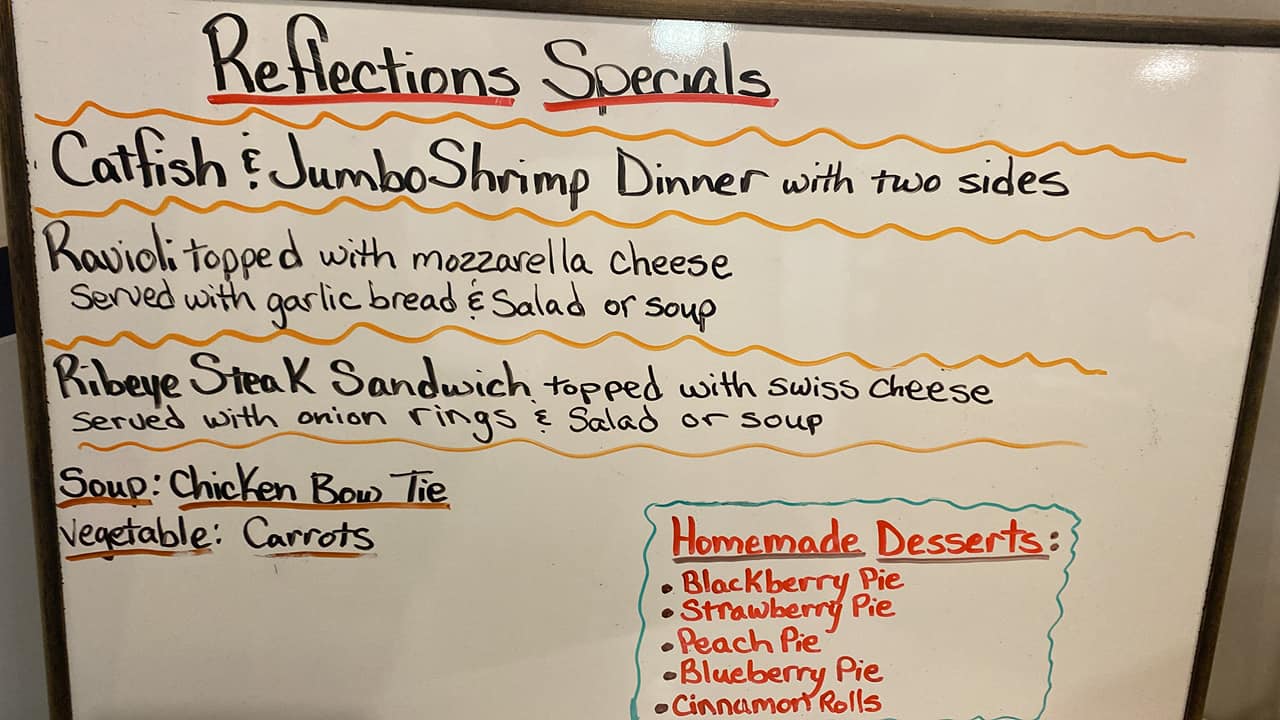 Reflections Specials
Catfish & Jumbo Shrimp Dinner with two sides
Ravioli topped with mozzarella cheese
Served with garlic bread & Salad or soup
Ribeye Steak Sandwich topped with swiss cheese
Served with onion rings & Salad or soup
Soup: Chicken Bow Tie
Vegetable: Carrots
Homemade Desserts:
• Blackberry Pie
• Strawberry Pie
• Peach Pie
• Blueberry Pie
• Cinnamon Rolls